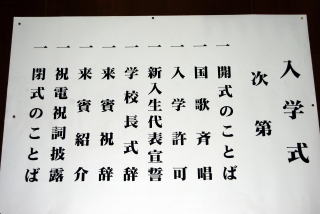 入学式
次第
一 開式のことば
一 国歌斉唱
一 入学許可
一 新入生代表宣誓
一 学校長式辞
一 来賓祝辞
一 来賓紹介
一 祝電祝詞披露
一 閉式のことば